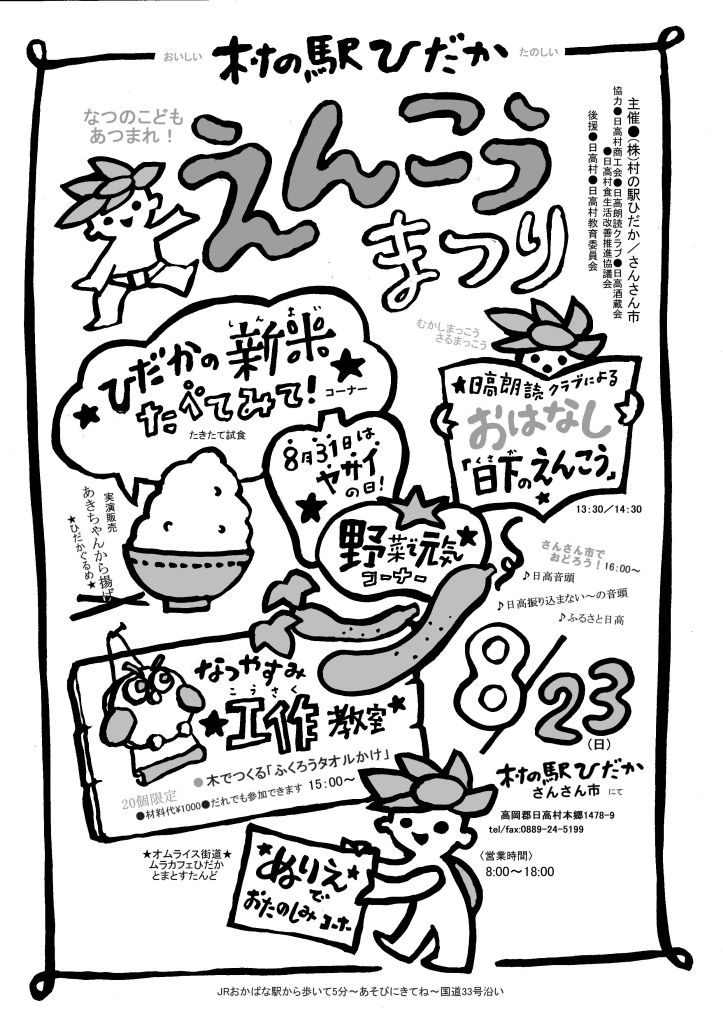 おいしい
村の駅ひだか
たのしい
なつのこども
あつまれ！
えんこう
まつり
主催●(株)村の駅ひだか／さんさん市
協力●日高村商工会●日高朗読クラブ●日高酒蔵会
●日高村食生活改善推進協議会
後援●日高村●日高村教育委員会
しんまい
ひだかの新米
★たべてみて！★
コーナー
たきたて試食
むかしまっこう
さるまっこう
★日高朗読クラブによる
おはなし
くさか
「日下のえんこう」
★
13:30／14:30
8月31日は
ヤサイ
の日！
★
野菜で元気★
コーナー
実演販売
あきちゃんから揚げ
★ひだかぐるめ★
さんさん市で
おどろう！16:00～
♪日高音頭
♪日高振り込まない～の音頭
♪ふるさと日高
8/23
(日)
なつやすみ
こうさく
★工作教室★
●木でつくる「ふくろうタオルかけ」
20個限定
●材料代¥1000●だれでも参加できます 15:00～
村の駅ひだか
さんさん市 にて
高岡郡日高村本郷1478-9
tel/fax:0889-24-5199
〈営業時間〉
8:00～18:00
★オムライス街道★
ムラカフェひだか
とまとすたんど
★ぬりえ★
で
おたのしみコーナー
JRおかばな駅から歩いて5分～あそびにきてね～国道33号沿い